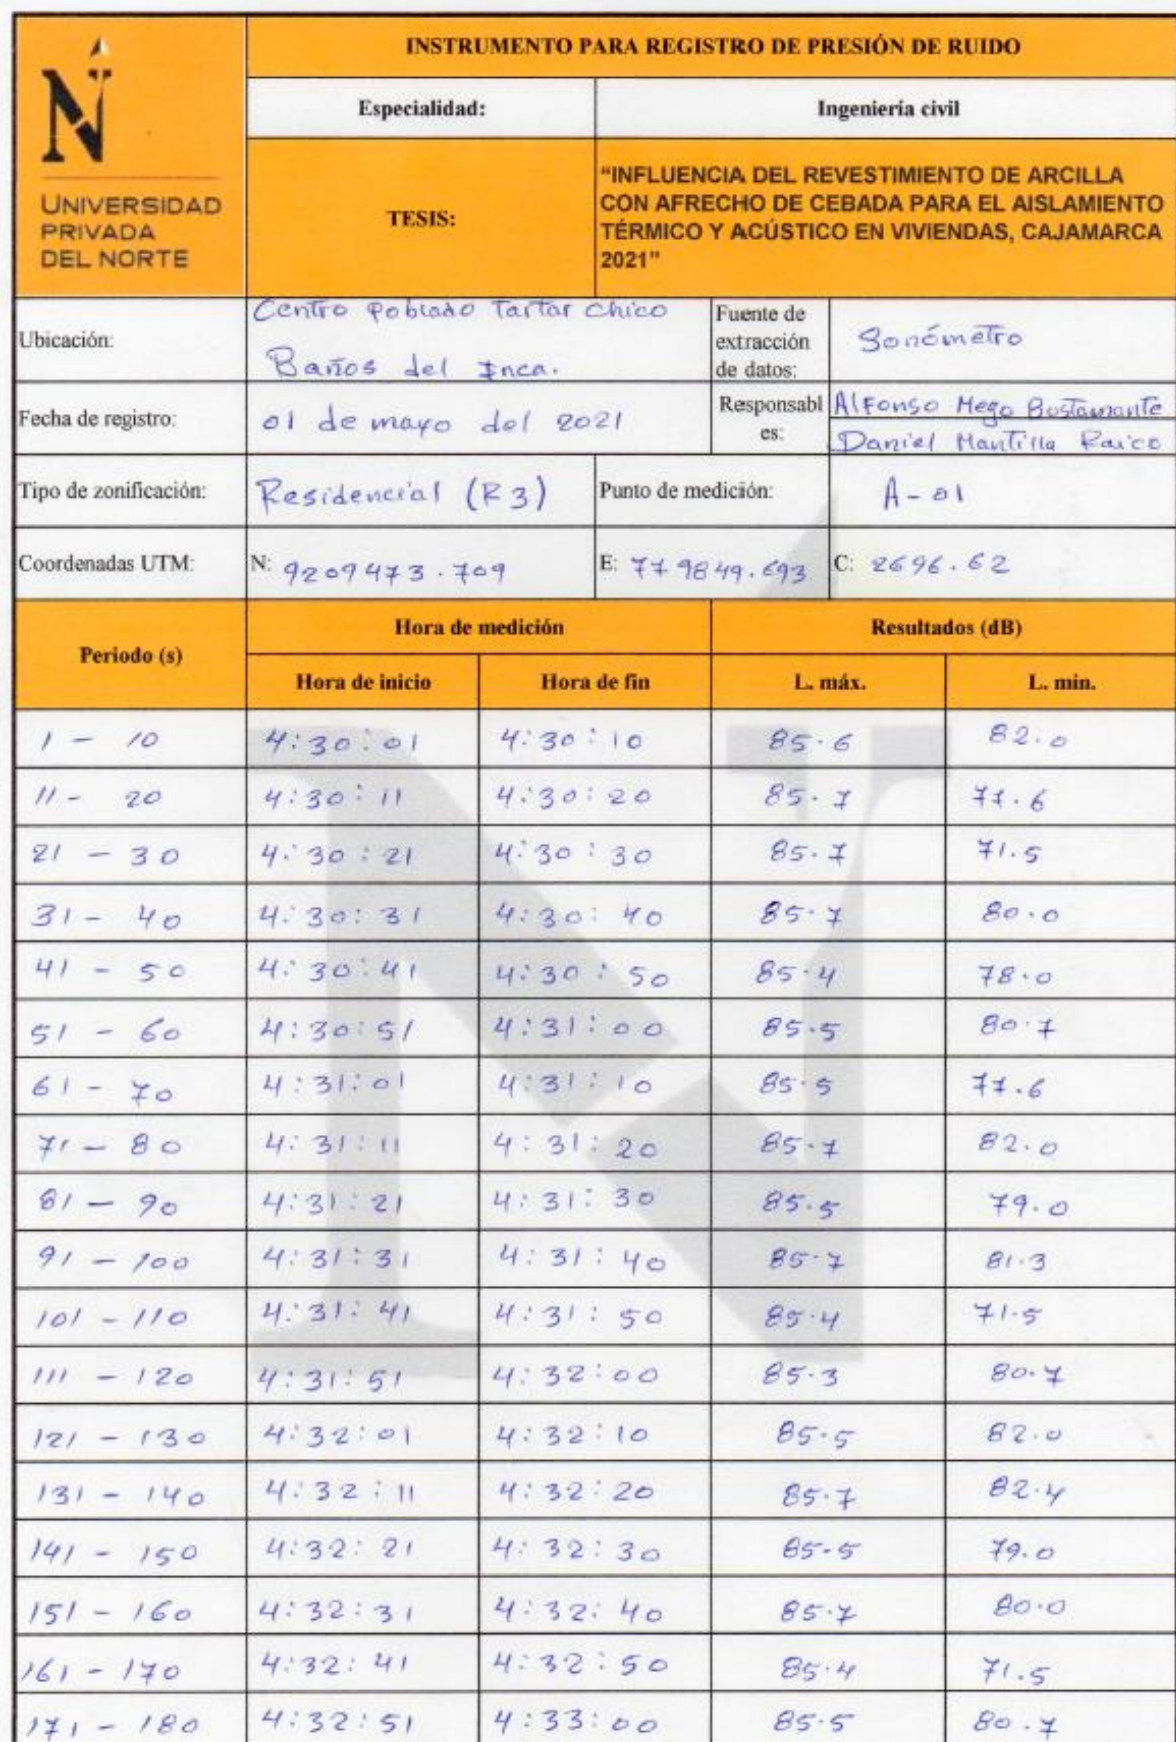 INSTRUMENTO PARA REGISTRO DE PRESIÓN DE RUIDO
UNIVERSIDAD
PRIVADA
DEL NORTE
Especialidad: Ingeniería civil
TESIS:
“INFLUENCIA DEL REVESTIMIENTO DE ARCILLA
CON AFRECHO DE CEBADA PARA EL AISLAMIENTO
TÉRMICO Y ACÚSTICO EN VIVIENDAS, CAJAMARCA
2021”
Ubicación:
Centro poblado Tartar chico
Baños del Inca.
Fuente de
extracción
de datos:
Sonómetro
Fecha de registro: 01 de mayo del 2021
Responsabl
es:
Alfonso Mego Bustamante
Daniel Mantilla Raico
Tipo de zonificación: Residencial (R3) Punto de medición: A-01
Coordenadas UTM: N: 9209473.709 E: 779849.693 C: 2696.62
Periodo (s) Hora de medición Resultados (dB)
Hora de inicio Hora de fin L. máx. L. min.
1 - 10 4:30:01 4:30:10 85.6 82.0
11 - 20 4:30:11 4:30:20 85.7 77.6
21 - 30 4:30:21 4:30:30 85.7 71.5
31 - 40 4:30:31 4:30:40 85.7 80.0
41 - 50 4:30:41 4:30:50 85.4 78.0
51 - 60 4:30:51 4:31:00 85.5 80.7
61 - 70 4:31:01 4:31:10 85.5 77.6
71 - 80 4:31:11 4:31:20 85.7 82.0
81 - 90 4:31:21 4:31:30 85.5 79.0
91 - 100 4:31:31 4:31:40 85.7 81.3
101 - 110 4:31:41 4:31:50 85.4 71.5
111 - 120 4:31:51 4:32:00 85.3 80.7
121 - 130 4:32:01 4:32:10 85.5 82.0
131 - 140 4:32:11 4:32:20 85.7 82.4
141 - 150 4:32:21 4:32:30 85.5 79.0
151 - 160 4:32:31 4:32:40 85.7 80.0
161 - 170 4:32:41 4:32:50 85.4 71.5
171 - 180 4:32:51 4:33:00 85.5 80.7